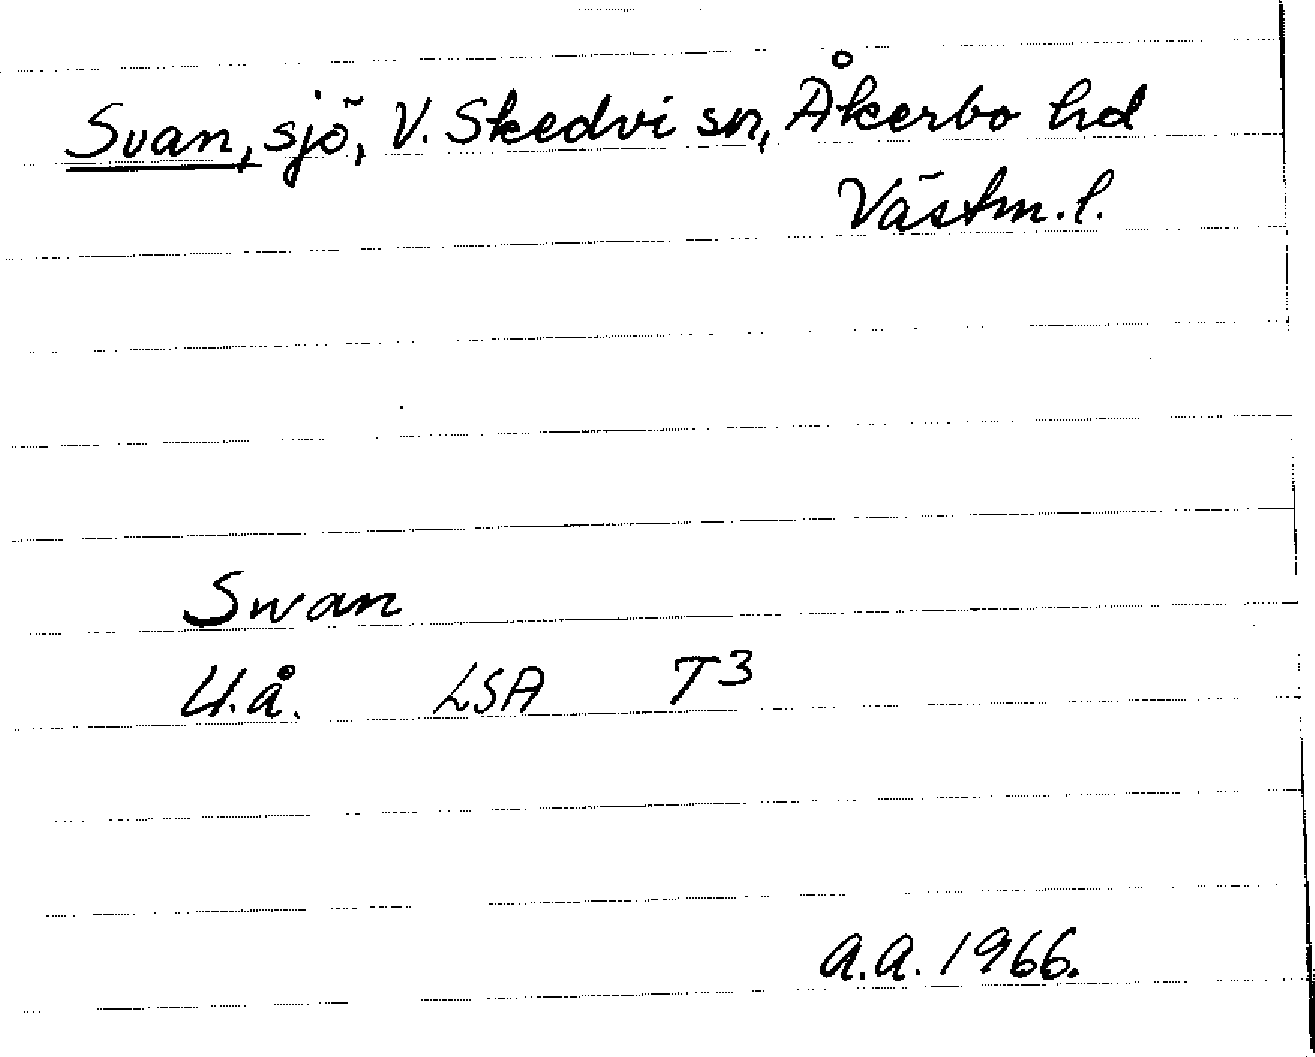 Svan, sjö, V. Skedvi sn, Åkerbo hd
Västm. l.
Swan
U.å. LSA T3
a.a. 1966.